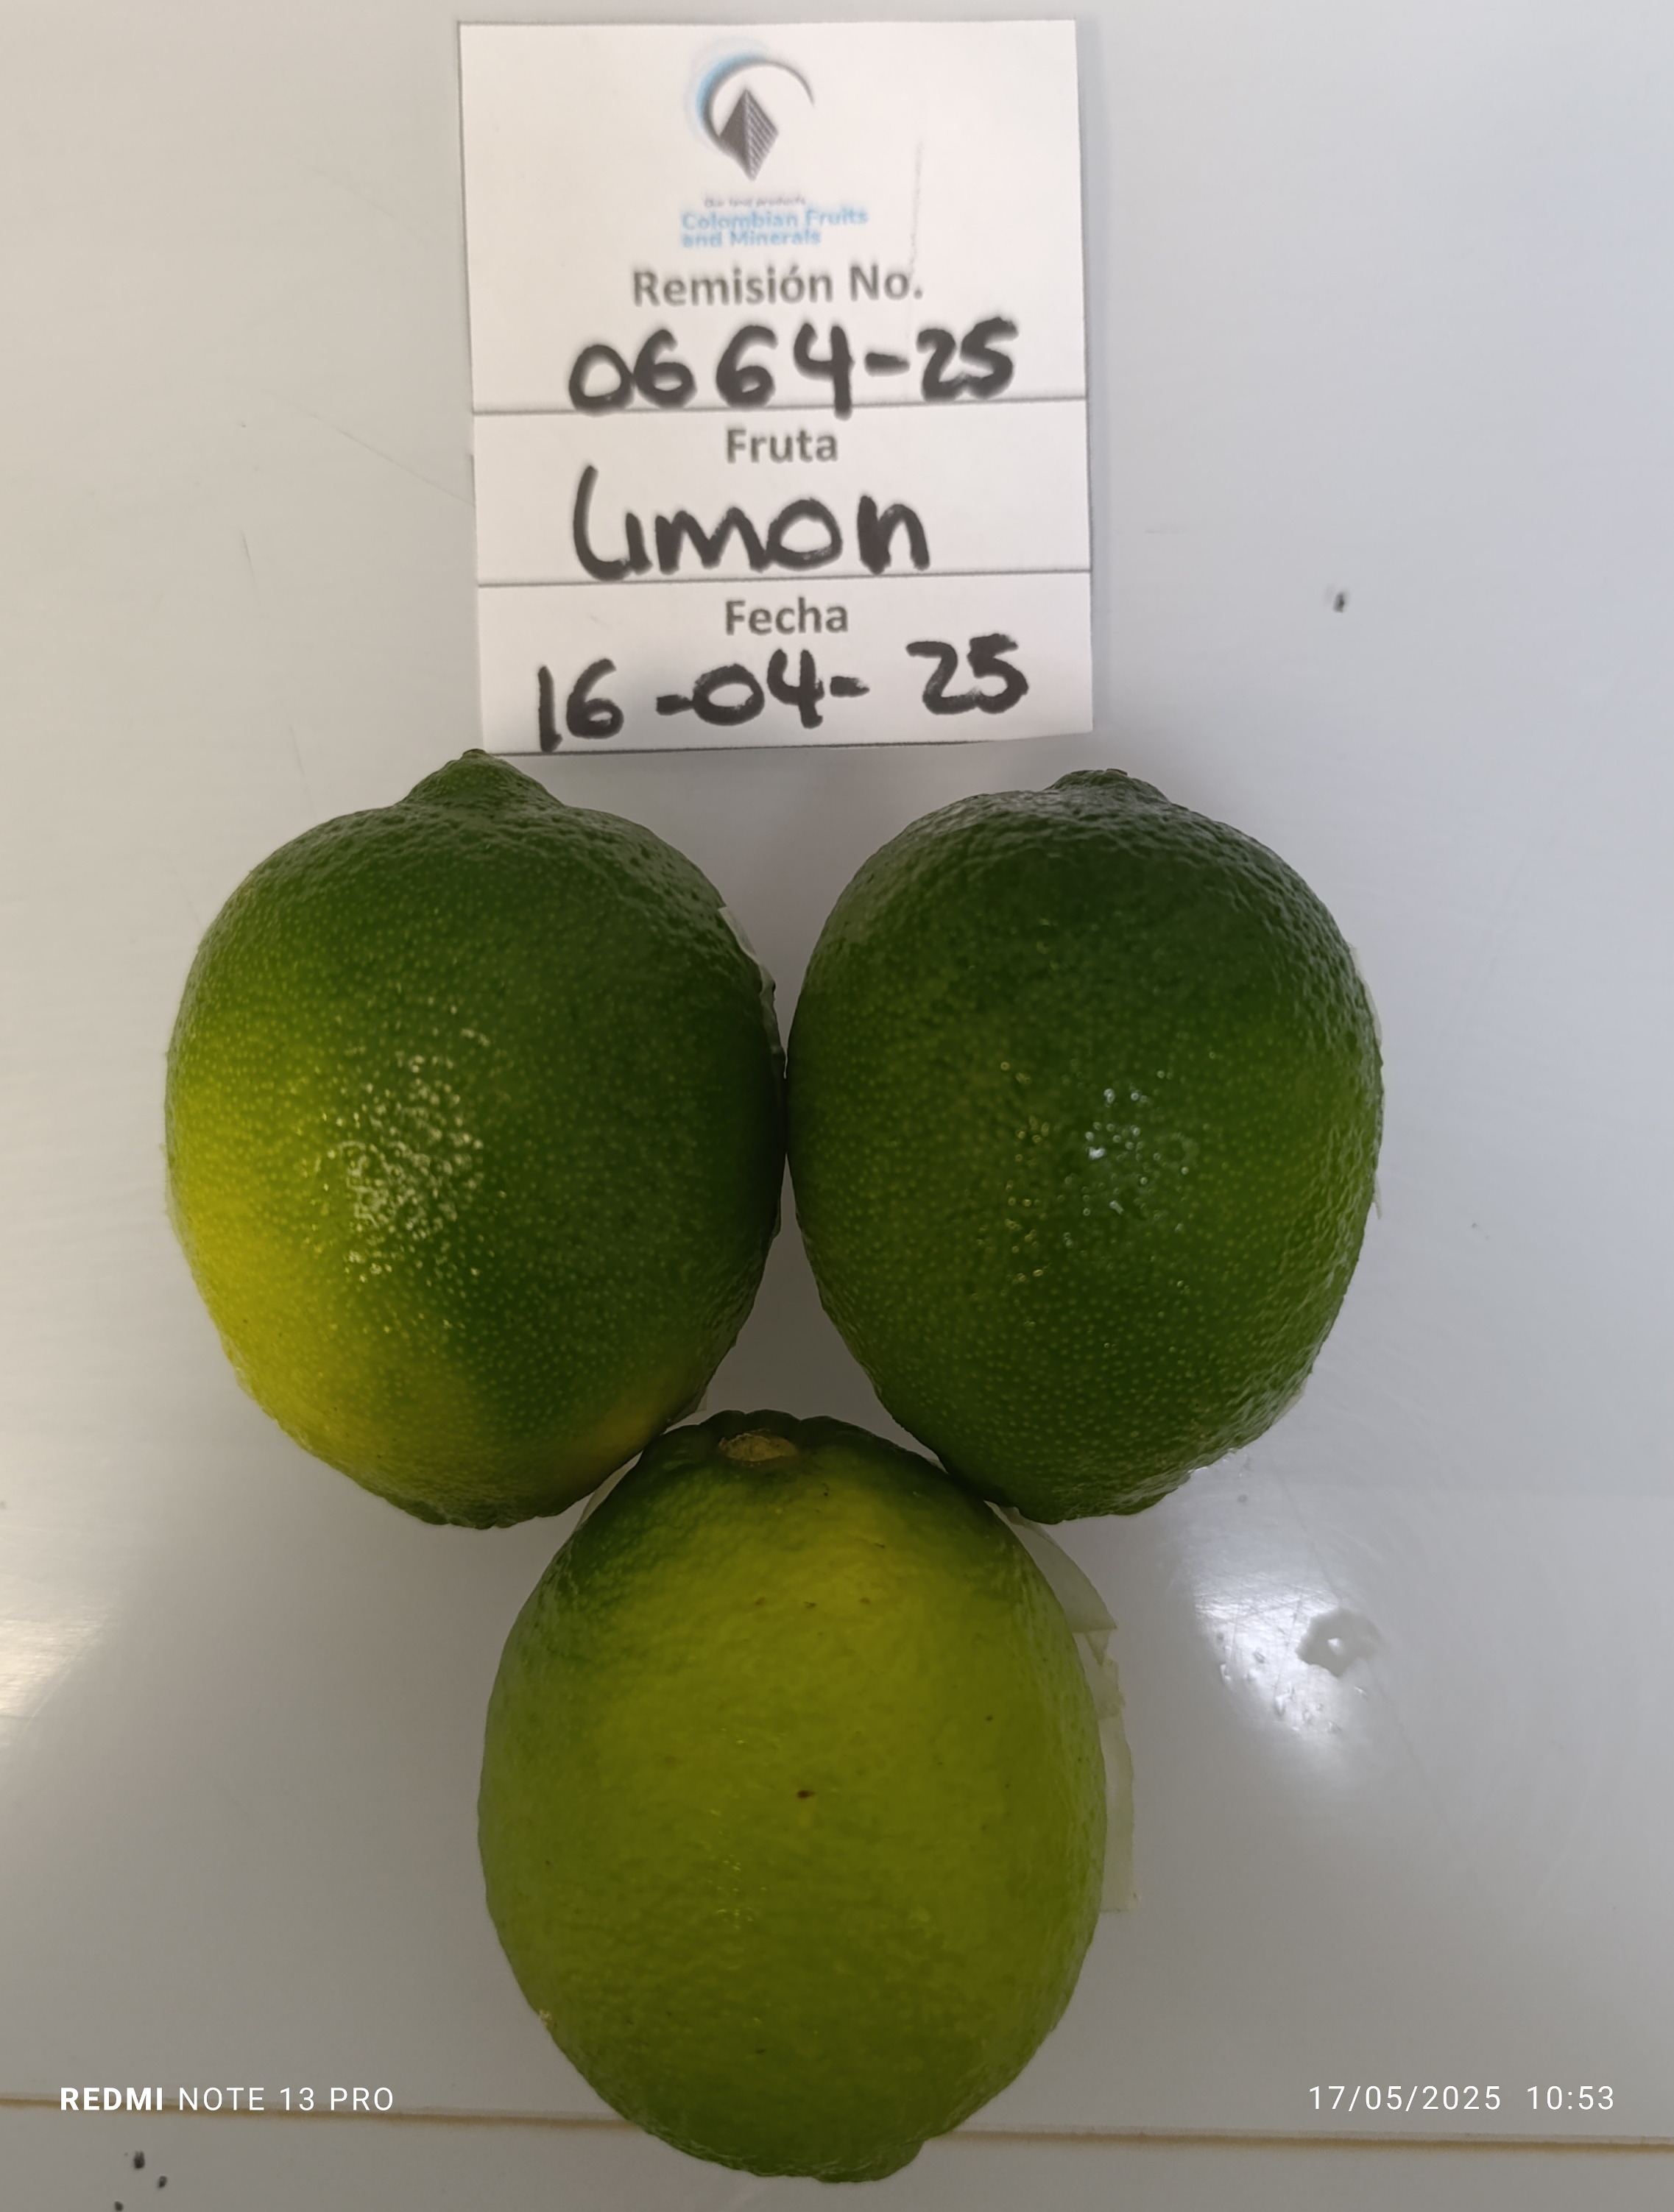 Our land products
Colombian Fruits
and Minerals
Remisión No.
0664-25
Fruta
Limon
Fecha
16-04-25
REDMI NOTE 13 PRO
17/05/2025 10:53